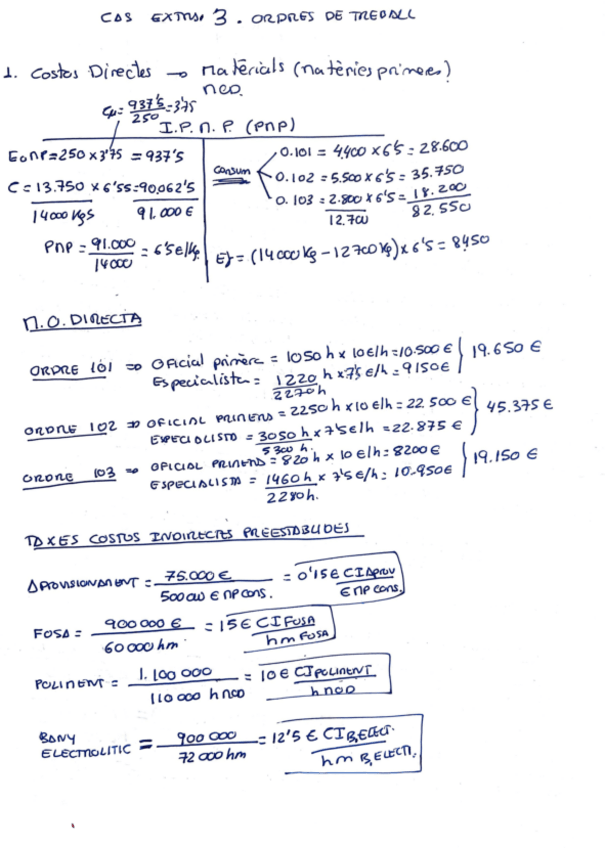 CAS EXTRA. 3. ORDRES DE TREBALL
1. Costos Directes → Materials (matèries primeres)
MOD.
Cu = 937'5 / 250 = 3'75
I.P.M.P. (PMP)
E0 MP = 250 x 3'75 = 937'5
C = 13.750 x 6'55 = 90.062'5
14000 Kgs 91.000 €
PMP = 91.000 / 14000 = 6'5 €/Kg.
Consum
O.101 = 4.400 x 6'5 = 28.600
O.102 = 5.500 x 6'5 = 35.750
O.103 = 2.800 x 6'5 = 18.200
12.700 82.550
Ef = (14000 Kg - 12700 Kg) x 6'5 = 8450
M.O. DIRECTA
ORDRE 101 ⇒ Oficial primera = 1050 h x 10 €/h = 10.500 € } 19.650 €
Especialista = 1220 h x 7'5 €/h = 9150 €
2270 h
ORDRE 102 ⇒ OFICIAL PRIMERA = 2250 h x 10 €/h = 22.500 € } 45.375 €
ESPECIALISTA = 3050 h x 7'5 €/h = 22.875 €
5300 h.
ORDRE 103 ⇒ OFICIAL PRIMERA = 820 h x 10 €/h = 8200 € } 19.150 €
ESPECIALISTA = 1460 h x 7'5 €/h = 10.950 €
2280 h.
TAXES COSTOS INDIRECTES PREESTABLIDES
APROVISIONAMENT = 75.000 € / 500 000 € MP CONS. = 0'15 € CI APROV / € MP CONS.
FOSA = 900 000 € / 60 000 hm = 15 € CI FOSA / hm FOSA
POLIMENT = 1.100 000 / 110 000 h MOD = 10 € CI POLIMENT / h MOD
BANY
ELECTROLITIC = 900 000 / 72 000 hm = 12'5 € CI B,ELECT. / hm B,ELECT.